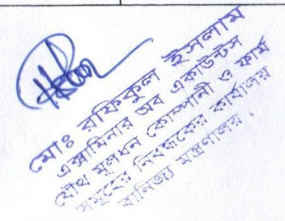 মোঃ রফিকুল ইসলাম
এক্সামিনার অব একাউন্টস
যৌথ মূলধন কোম্পানী ও ফার্ম
সমূহের নিবন্ধকের কার্যালয়
বানিজ্য মন্ত্রণালয়।